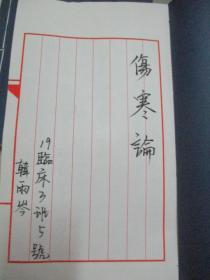 傷寒論
19臨床3班5號
韓雨岑